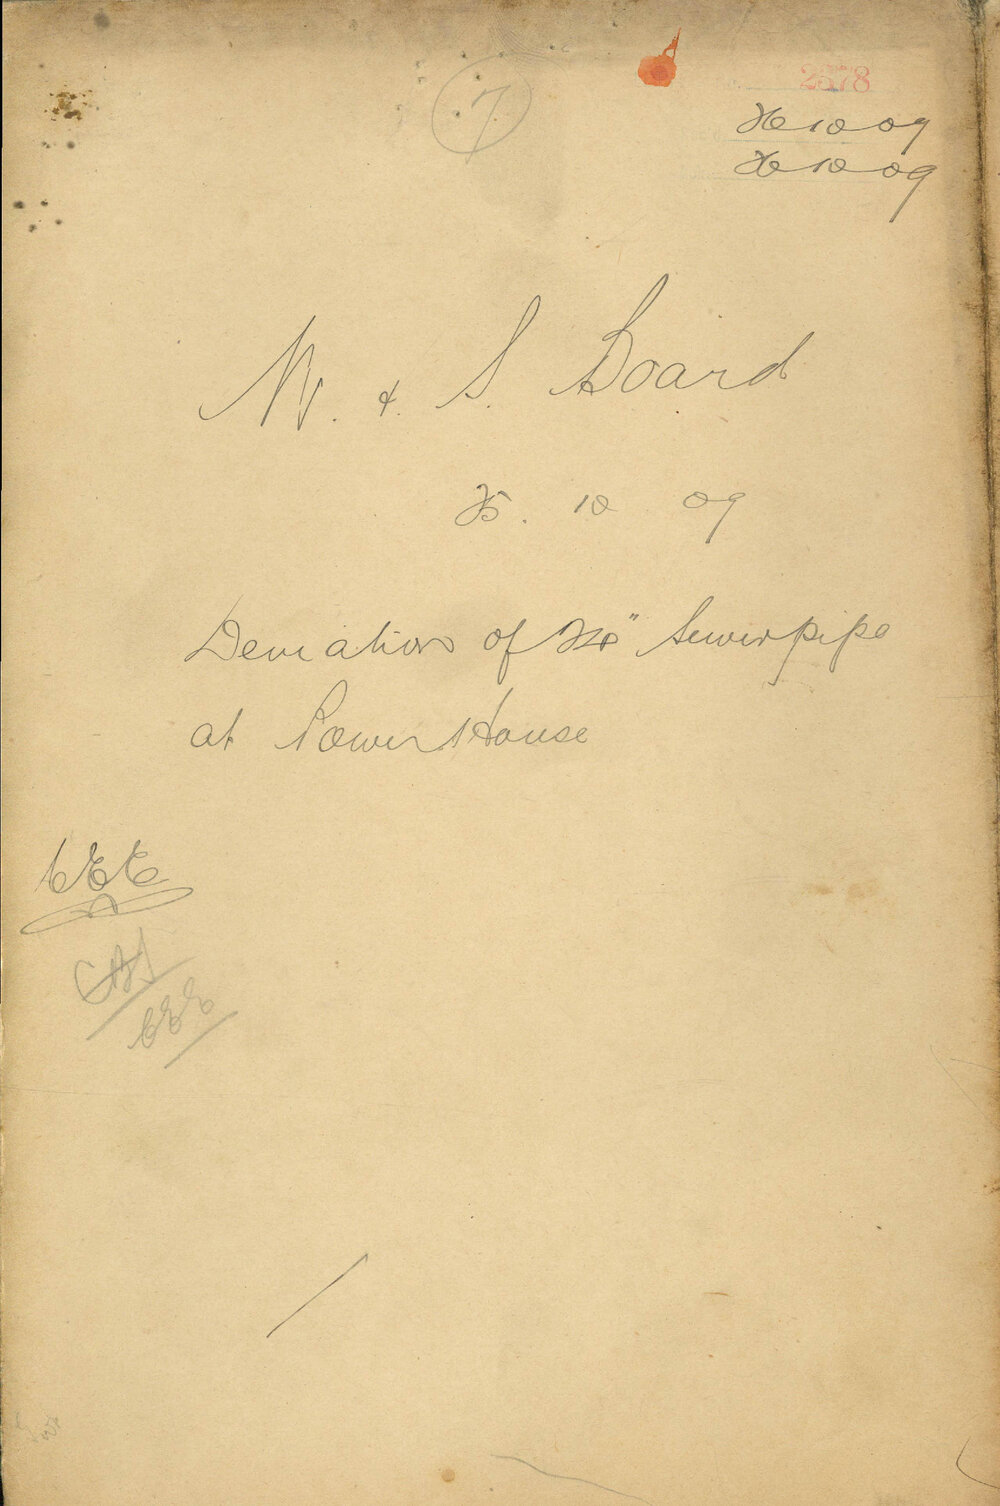 7
2578
26 10 09
26 10 09
W. & S. Board
25. 10 09
Deviation of 24" Sewerpipe
at Power House